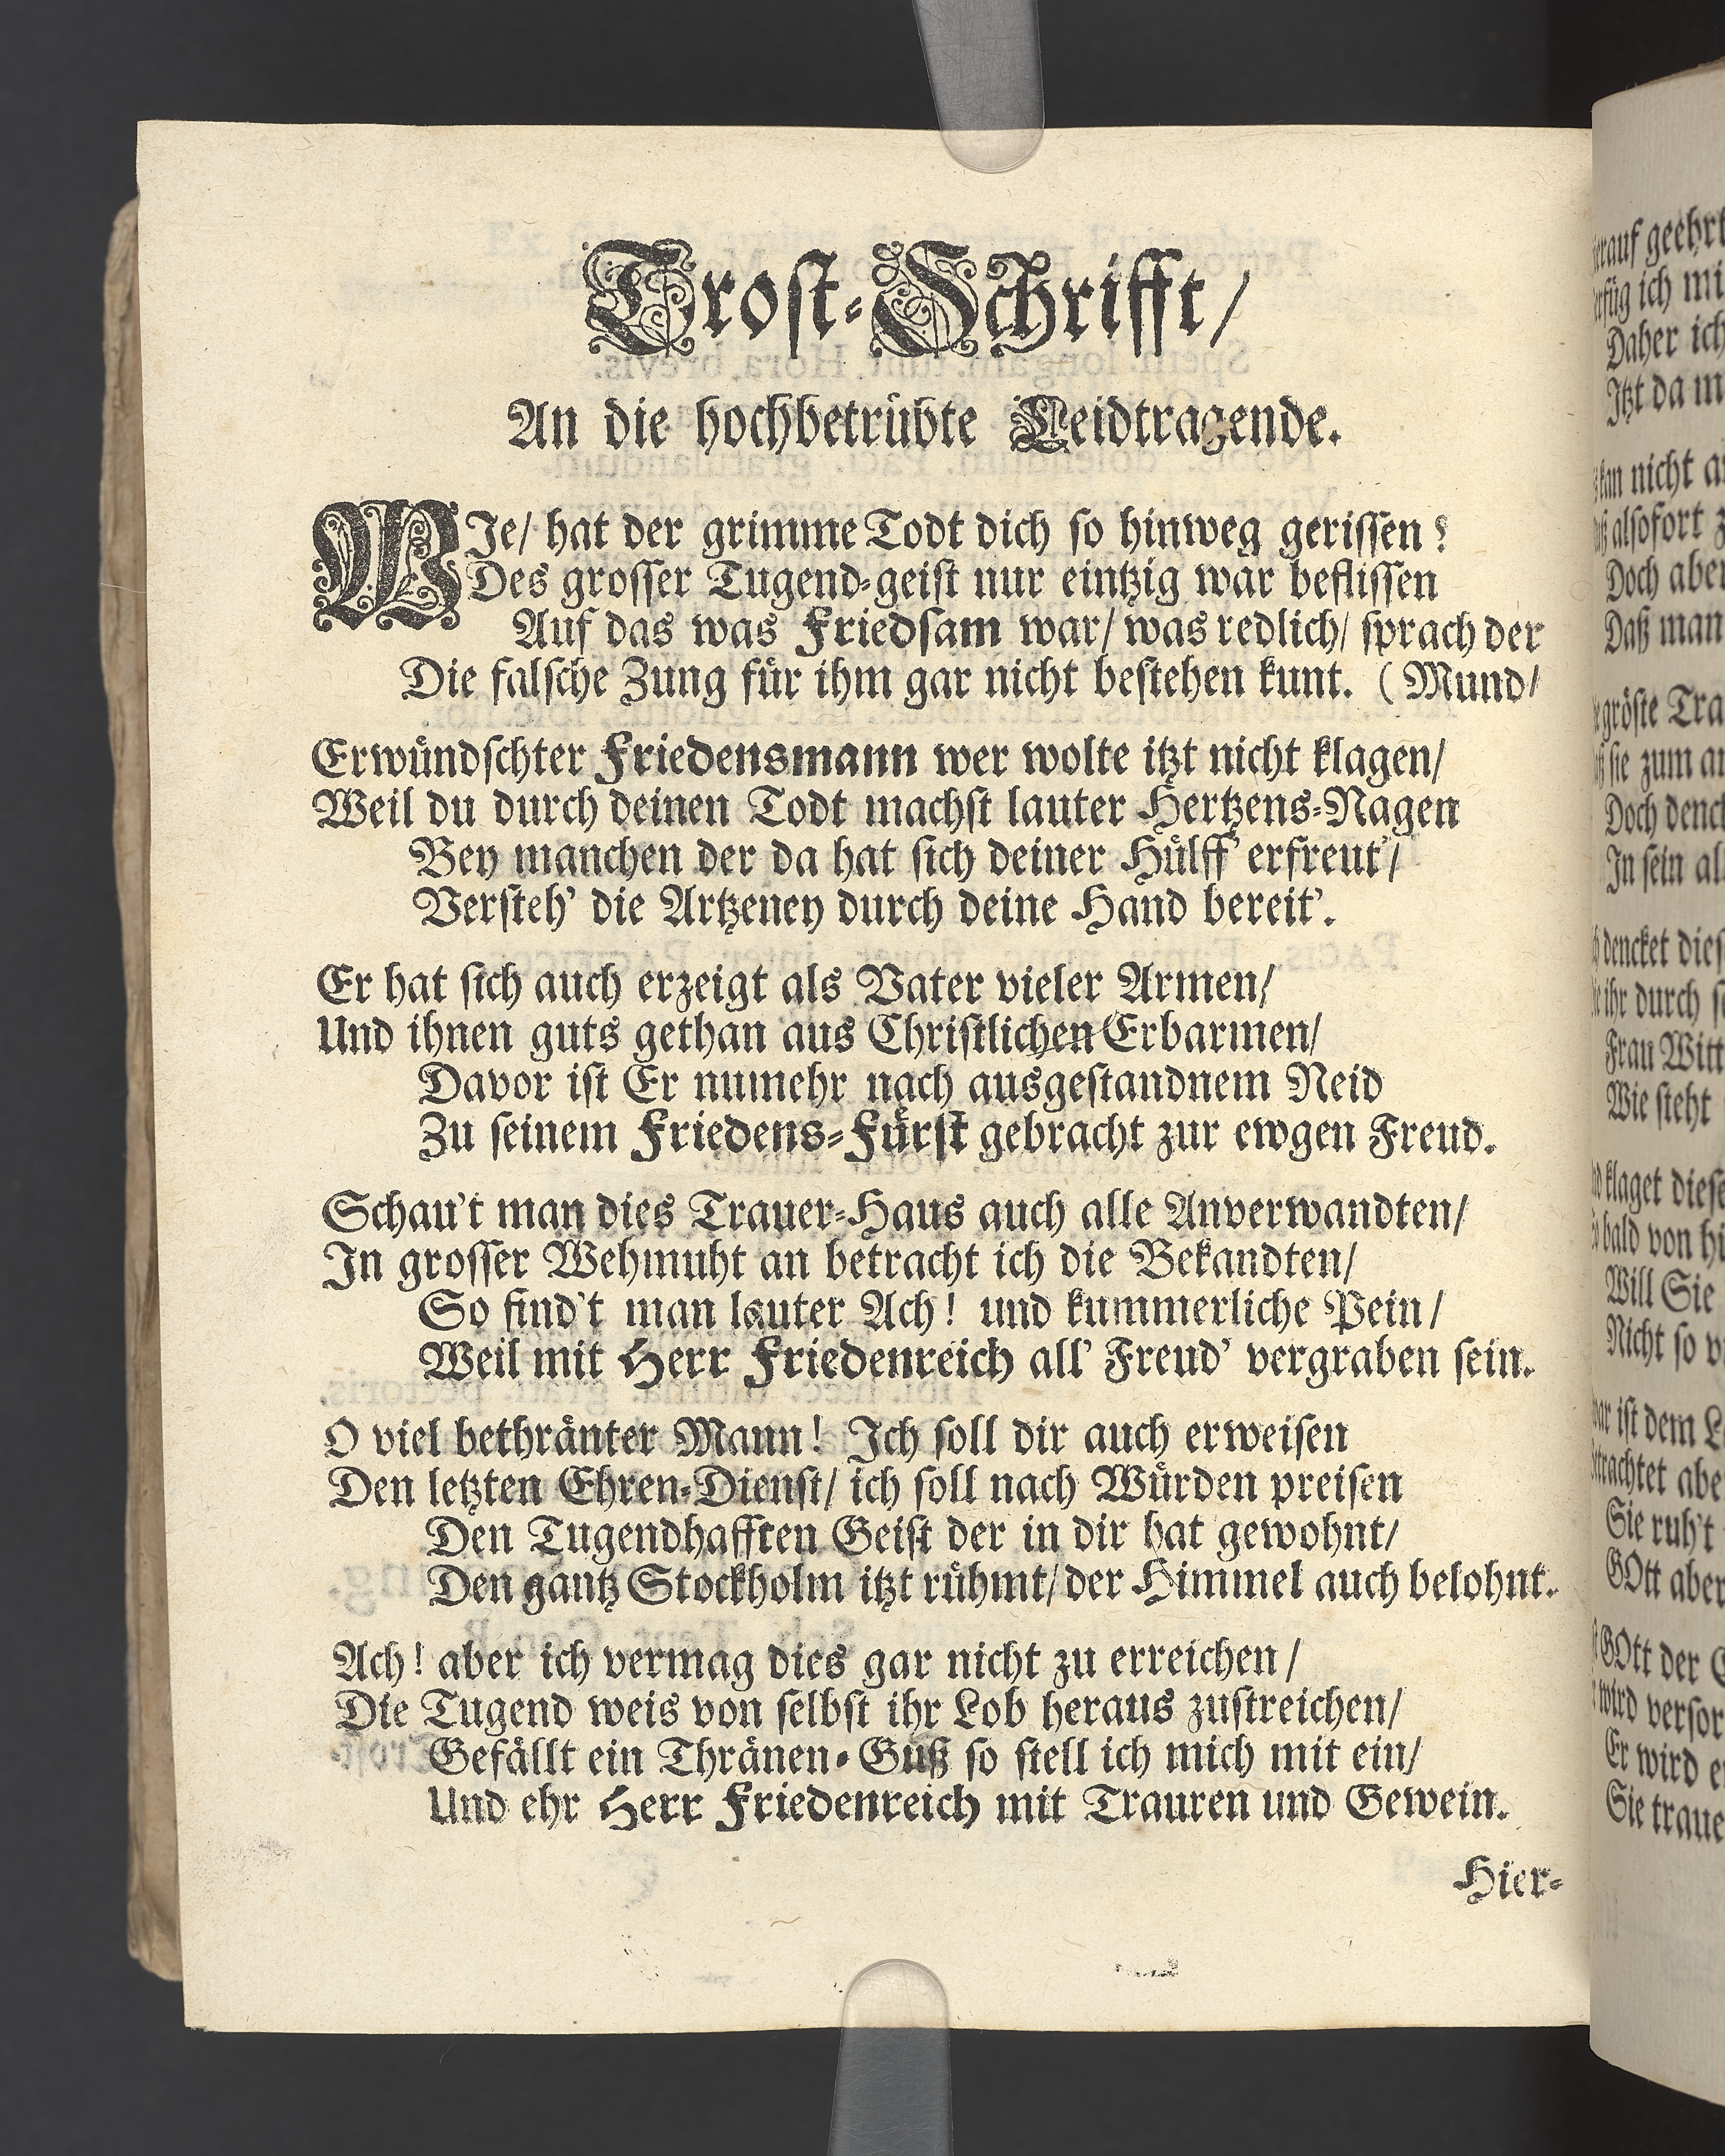 Trost-Schrifft/
An die hochbetrübte Leidtragende.
WJe/ hat der grimme Todt dich so hinweg gerissen?
Des grosser Tugend-geist nur eintzig war beflissen
Auf das was Friedsam war/ was redlich/ sprach der
Die falsche Zung für ihm gar nicht bestehen kunt. (Mund/
Erwündschter Friedensmann wer wolte itzt nicht klagen/
Weil du durch deinen Todt machst lauter Hertzens-Nagen
Bey manchen der da hat sich deiner Hülff' erfreut'/
Versteh' die Artzeney durch deine Hand bereit'.
Er hat sich auch erzeigt als Vater vieler Armen/
Und ihnen guts gethan aus Christlichen Erbarmen/
Davor ist Er numehr nach ausgestandnem Neid
Zu seinem Friedens-Fürst gebracht zur ewgen Freud.
Schau't man dies Trauer-Haus auch alle Anverwandten/
In grosser Wehmuht an betracht ich die Bekandten/
So find't man lauter Ach! und kummerliche Pein/
Weil mit Herr Friedenreich all' Freud' vergraben sein.
O viel bethränter Mann! Ich soll dir auch erweisen
Den letzten Ehren-Dienst/ ich soll nach Würden preisen
Den Tugendhafften Geist der in dir hat gewohnt/
Den gantz Stockholm itzt rühmt/ der Himmel auch belohnt.
Ach! aber ich vermag dies gar nicht zu erreichen/
Die Tugend weis von selbst ihr Lob heraus zustreichen/
Gefällt ein Thränen-Guß so stell ich mich mit ein/
Und ehr Herr Friedenreich mit Trauren und Gewein.
Hier-
geehrt
ich
Daher ich
Itzt da
nicht
alsofort
Doch aber
Daß man
gröste
sie zum
Doch
In sein
dencket
ihr durch
Frau
Wie steht
klaget
bald von
Will Sie
Nicht so
ist dem
Sie ruh't
GOtt aber
GOtt der
wird
Er wird
Sie